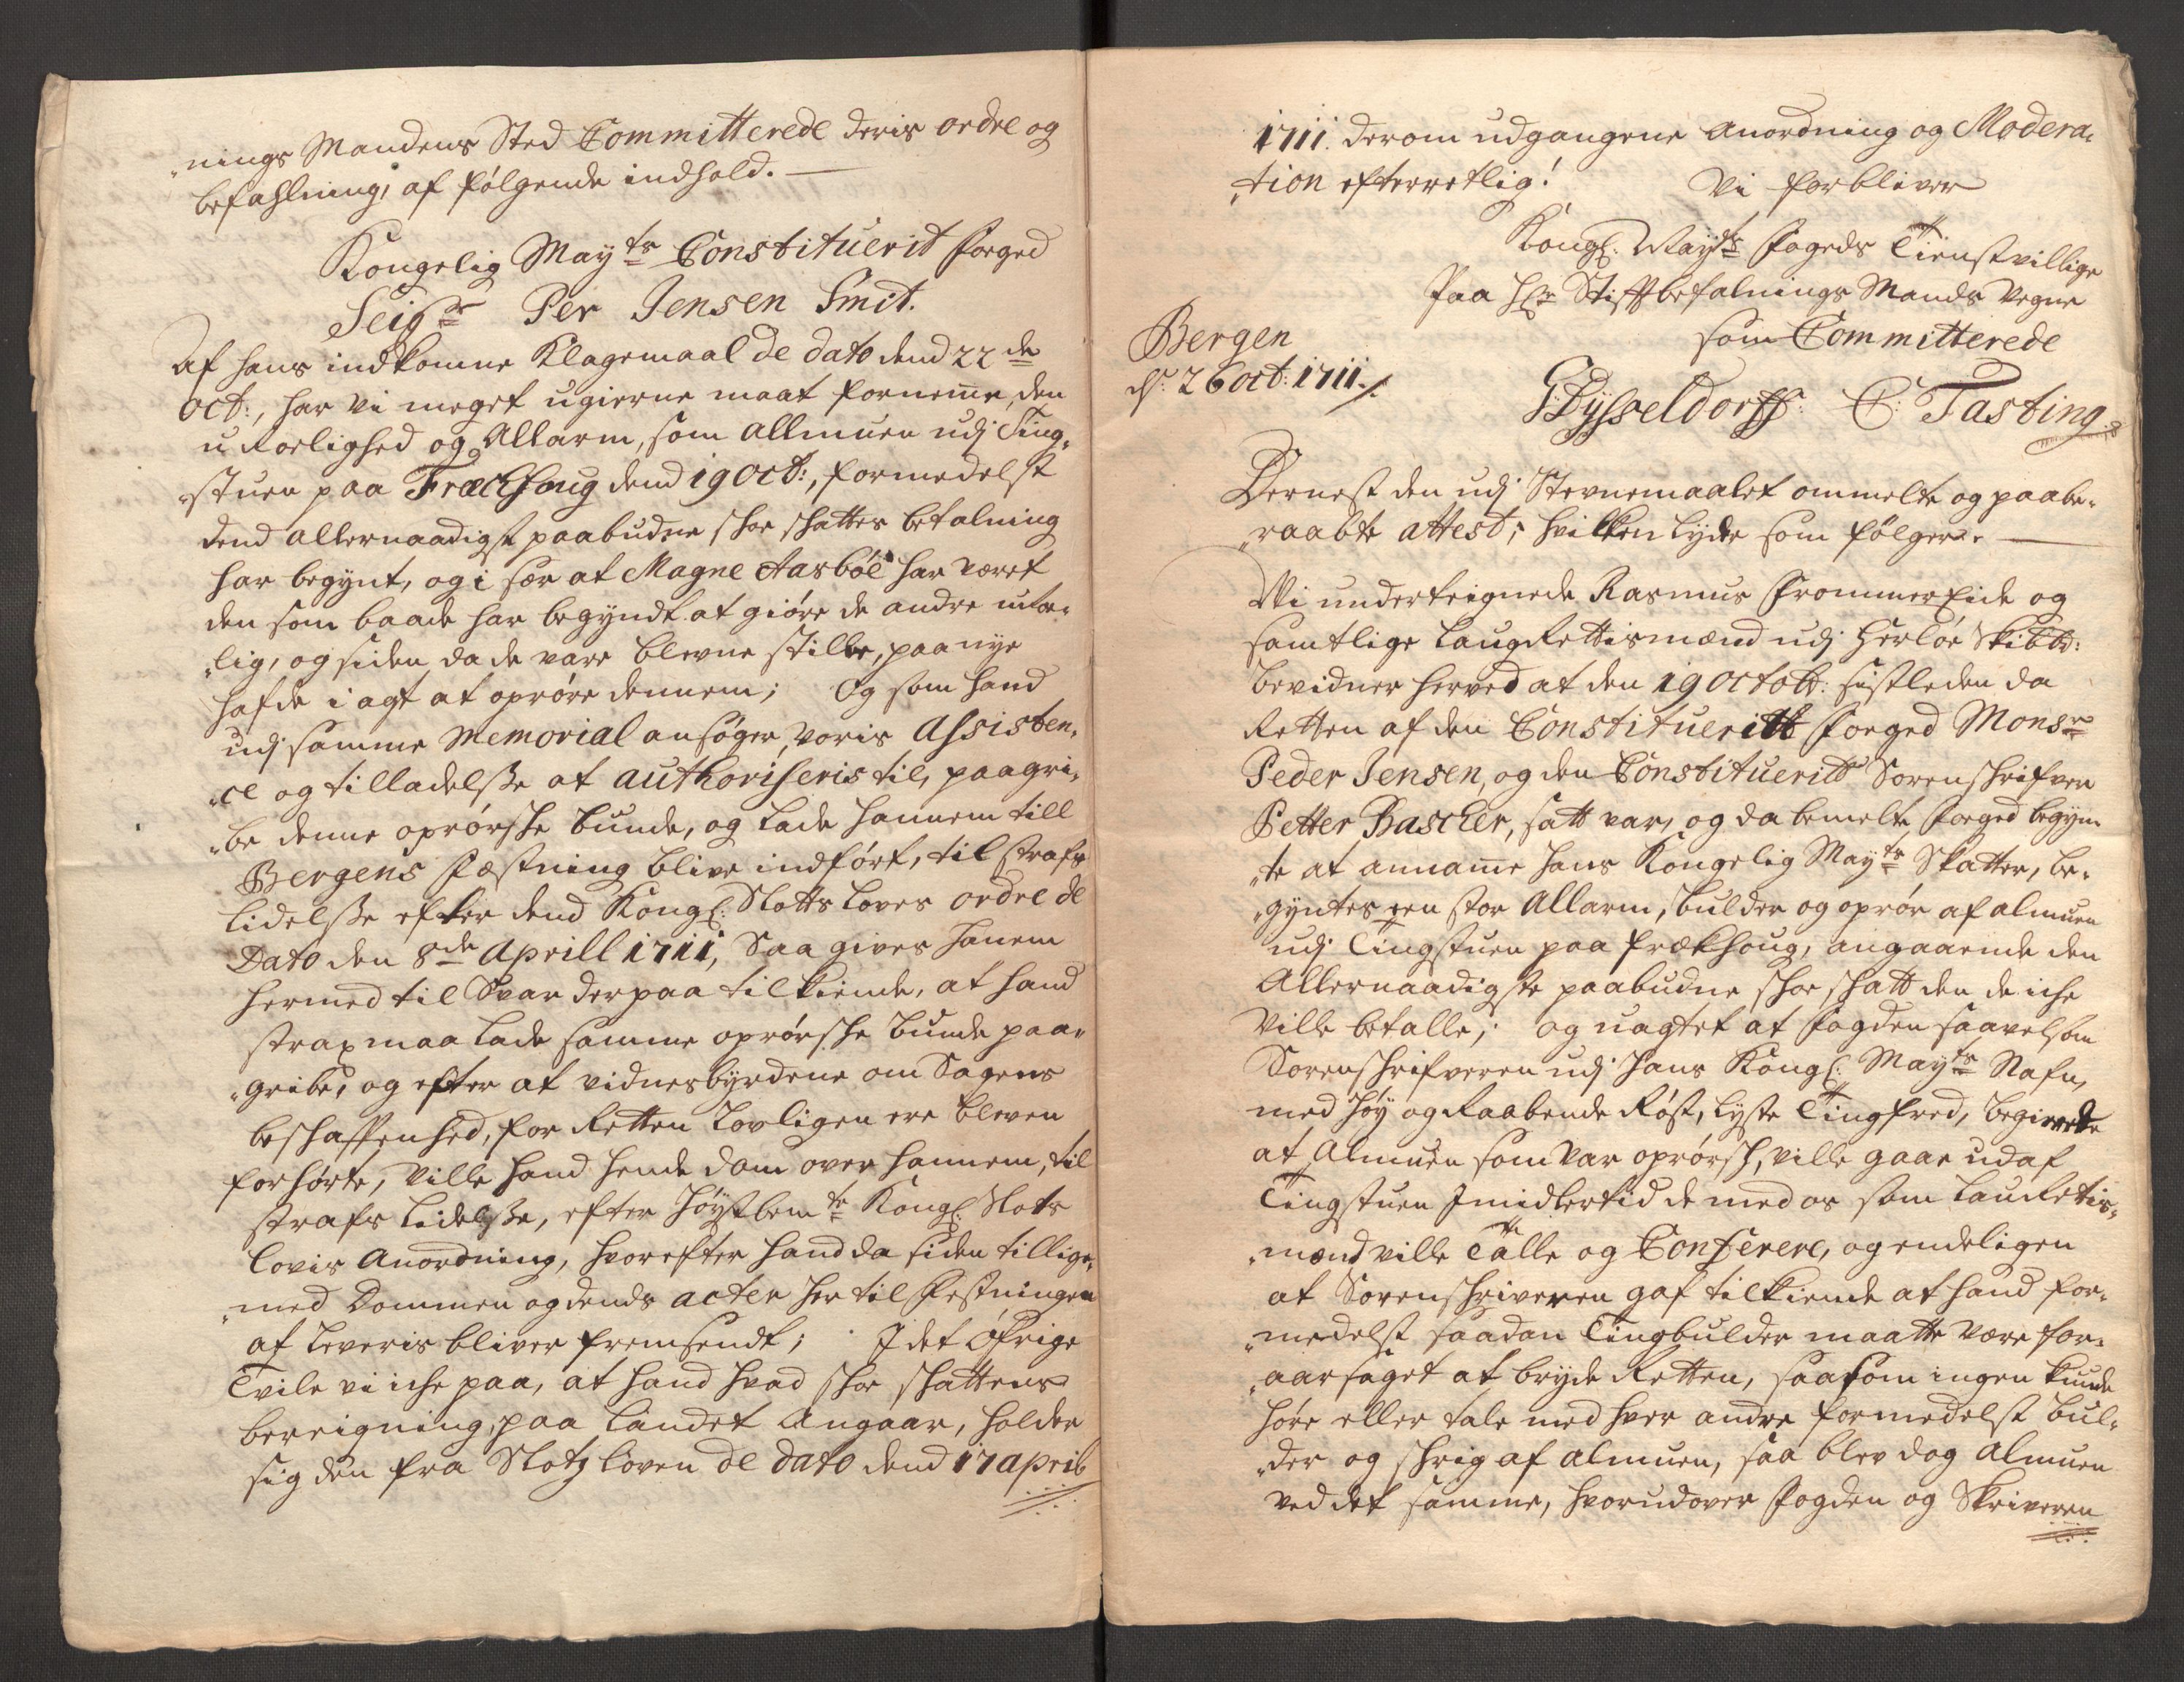 nings Mandens Sted Committerede deris ordre og
befahlning, af følgende indhold.
Kongelig May:ts Constituerit Foeged
Seigr Per Jensen Smit.
Af hans indkomne Klagemaal de dato dend 22de
Oct:, har vi meget ugierne maat fornem̄e, den
uRoelighed og Allarm, som Allmuen udj Ting„
„stuen paa Fræchhoug dend 19 Oct:, formedelst
dend allernaadigst paabudne schoe schattes betalning
har begynt, og i sær at Magne Aasbøe har været
den som baade har begyndt at giøre de andre uroe„
„lig, og siden da de vare blevne stille, paa nye
hafde i agt at oprøre dennem; Og som hand
udj samme Memorial ansøger voris Assisten„
„ce og tilladelsse at authoriseris til, paagri„
„be denne oprørsche bunde, og lade hannem till
Bergens Fæstning blive indført, til Strafs
lidelsse efter dend Kongl: Slotts Loves ordre de
Dato den 8de Aprill 1711, Saa gives hanem
hermed til Svar derpaa tilkiende, at hand
strax maa lade samme oprørsche bunde paa„
„gribe, og efter at vidnesbyrdene om Sagens
beschaffenhed, for Retten Lovligen ere bleven
forhørte, Ville hand hende dom over hannem, til
strafs Lidelsse, efter Høystbemte Kongl: Slots
lovis Anordning, hvorefter hand da siden tillige„
„med Dommen og dends acter her til Festningen
at leveris bliver fremsendt; J det Øfrige
Tvile vi iche paa, at hand hvad schoe schattens
bereigning paa landet angaar, holder
sig den fra Slotz loven de dato dend 17 april
1711. derom udgangene Anordning og Modera„
„tion efterretlig! Vi forbliver
Kongl: Mayts Fogeds Tienstvillige
Paa Hr Stiftbefalnings Mands Vegne
som Committerede
Bergen
ds: 26 oct: 1711.
Dysseldorff: C: Tasting
Dernest den udj Stevnemaalet ommelte og paabe„
„raabte attest, hvilken lyder som følger.
Wi underteignede Rasmus Frommereide og
samtlige LaugRettismænd udj Herløe Skibb:
bevidner herved at den 19 Octob: sistleden da
Retten af den Constituerit Foeged Monsr
Peder Jensen, og den Constituerit Sorenschrifver
Petter Bascher, satt var, og da bemelte Foeged begyn
„te at annam̄e hans Kongelig Mayts Skatter, be„
„gyntes een stor Allarm, bulder og oprør af almuen
udj Tingstuen paa Frækhoug, angaaende den
Allernaadigste paabudne schoe schatt den de iche
Ville betalle, og uagtet at Fogden saavelsom
Sorenschrifveren udj Hans Kongl: Mayts Nafn,
med høy og Raabende Røst, lyste Tingfred, begierede
at Almuen som var oprørsch, ville gaae ud af
Tingstuen Jmidlertid de med os som LauRetis„
„mænd ville Talle og Conferere, og endeligen
at Sorenschriveren gaf tilkiende at hand for„
„medelst saadan Tingbulder maatte være for„
„aarsaget at bryde Retten, saasom ingen kunde
høre eller tale med hver andre formedelst bul„
„der og schrig af almuen, saa blev dog Almuen
ved det samme, hvorudover Fogden og Skriveren